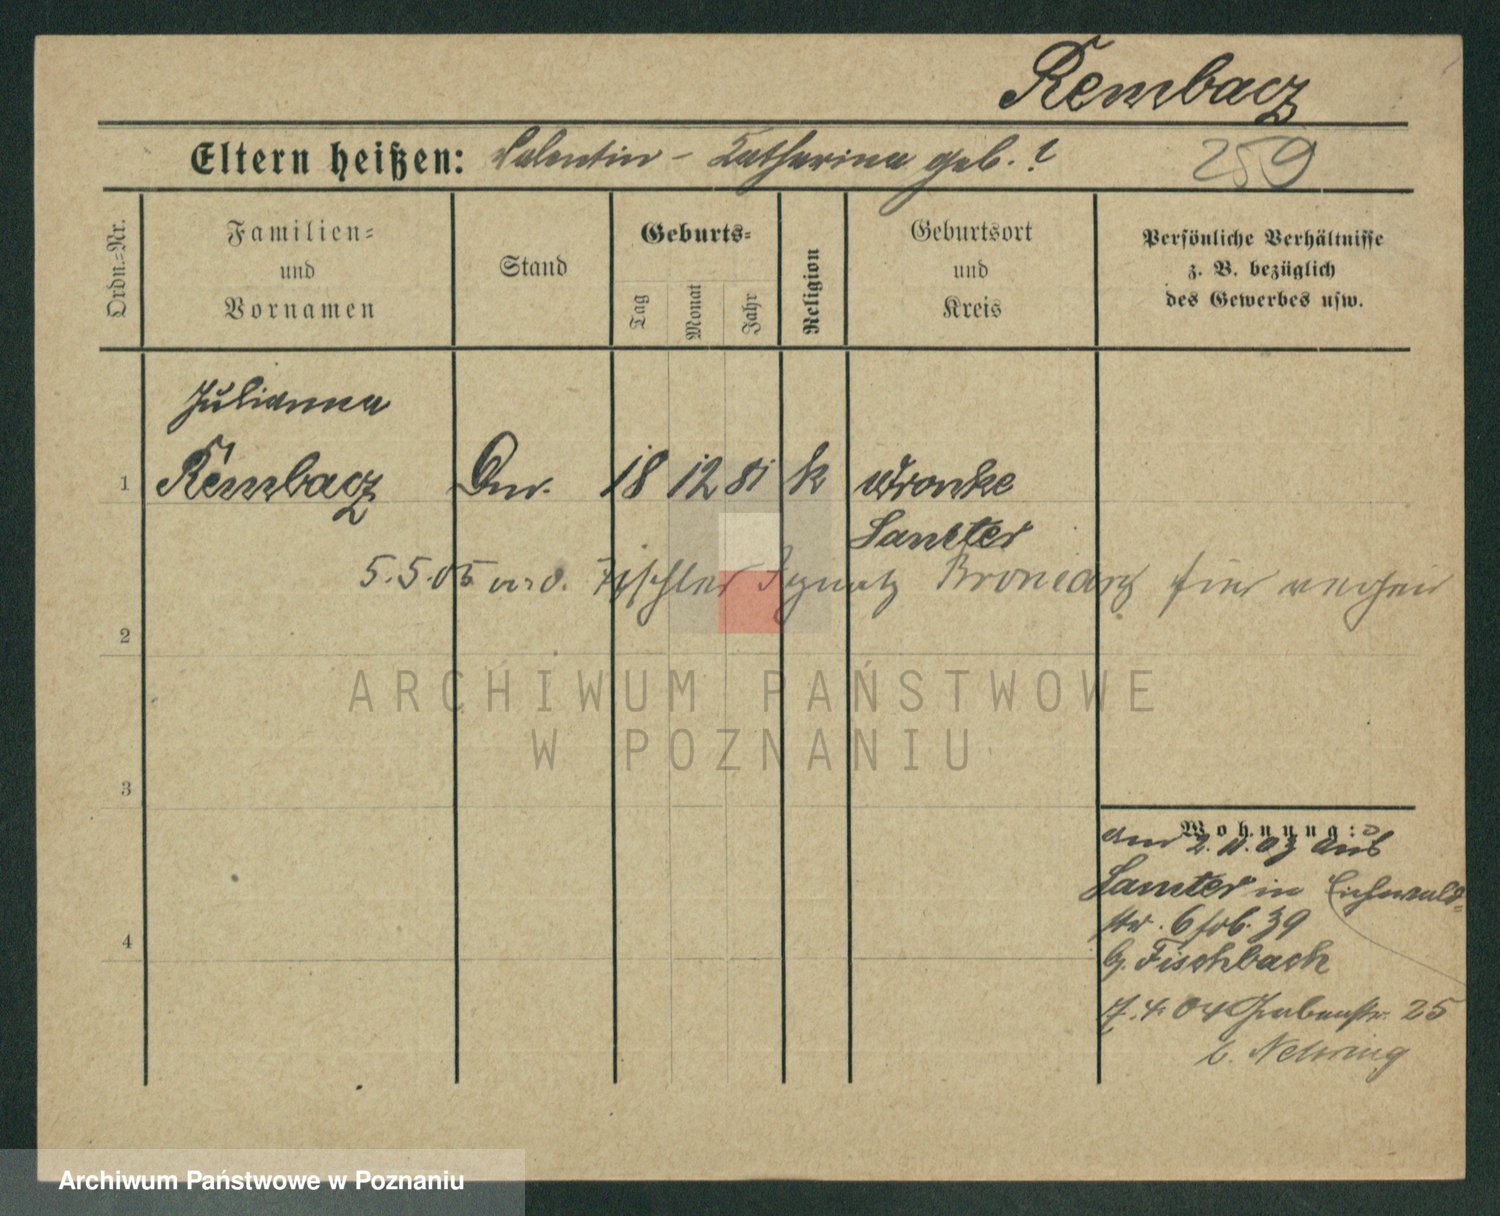 Rembacz
Eltern heißen: Valentin - Katharina geb. ?
259
Ordn.-Nr.
Familien-
und
Vornamen
Stand
Geburts-
Tag
Monat
Jahr
Religion
Geburtsort
und
Kreis
Persönliche Verhältnisse
z. B. bezüglich
des Gewerbes usw.
Julianna
1 Rembacz 18 12 81 k Wronke
Samter
5.5.05 Tischler Ignatz hier
2
ARCHIWUM PAŃSTWOWE
W POZNANIU
3
Wohnung:
am 2. 11. 03 aus
Samter in Eichwald-
str. 6 39
b. Fischbach
7.4.04 Grabenstr. 25
b. Nehring
4
Archiwum Państwowe w Poznaniu